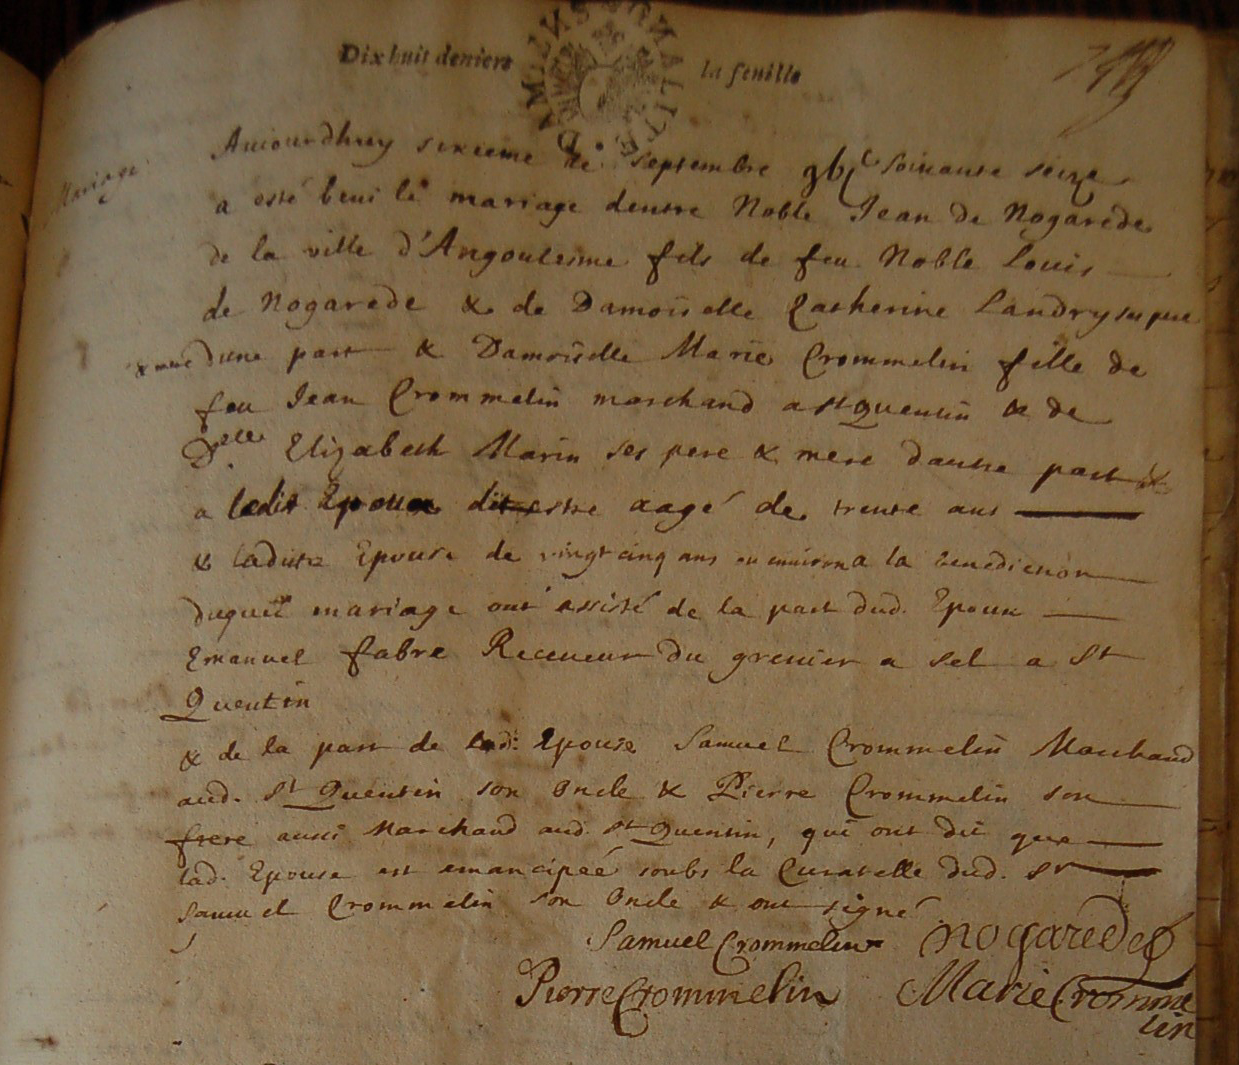 Dix huit deniers la feuille
Mariage
Aujourdhuy sixieme de septembre 16C soixante seize
a esté beni le mariage dentre Noble Jean de Nogarede
de la ville d'Angoulesme fils de feu Noble Louis
de Nogarede & de Damoiselle Catherine Landry ses pere
& mere dune part & Damoiselle Marie Crommelin fille de
feu Jean Crommelin marchand a st Quentin & de
Delle Elizabeth Marin ses pere & mere dautre part &
a ledit Epoux dit estre aagé de trente ans
& ladite Epouse de vingt cinq ans ou environ a la benediction
duquel mariage ont assisté de la part dud. Epoux
Emanuel fabre Receveur du grenier a sel a St
Quentin
& de la part de lad. Epouse Samuel Crommelin Marchand
aud. St Quentin son Oncle & Pierre Crommelin son
frere aussi Marchand aud. St Quentin, qui ont dit que
lad. Epouse est emancipeé soubs la Curatelle dud. Sr
Samuel Crommelin son Oncle & ont signé
Samuel Crommelin nogarede
Pierre Crommelin Marie Cromme
lin